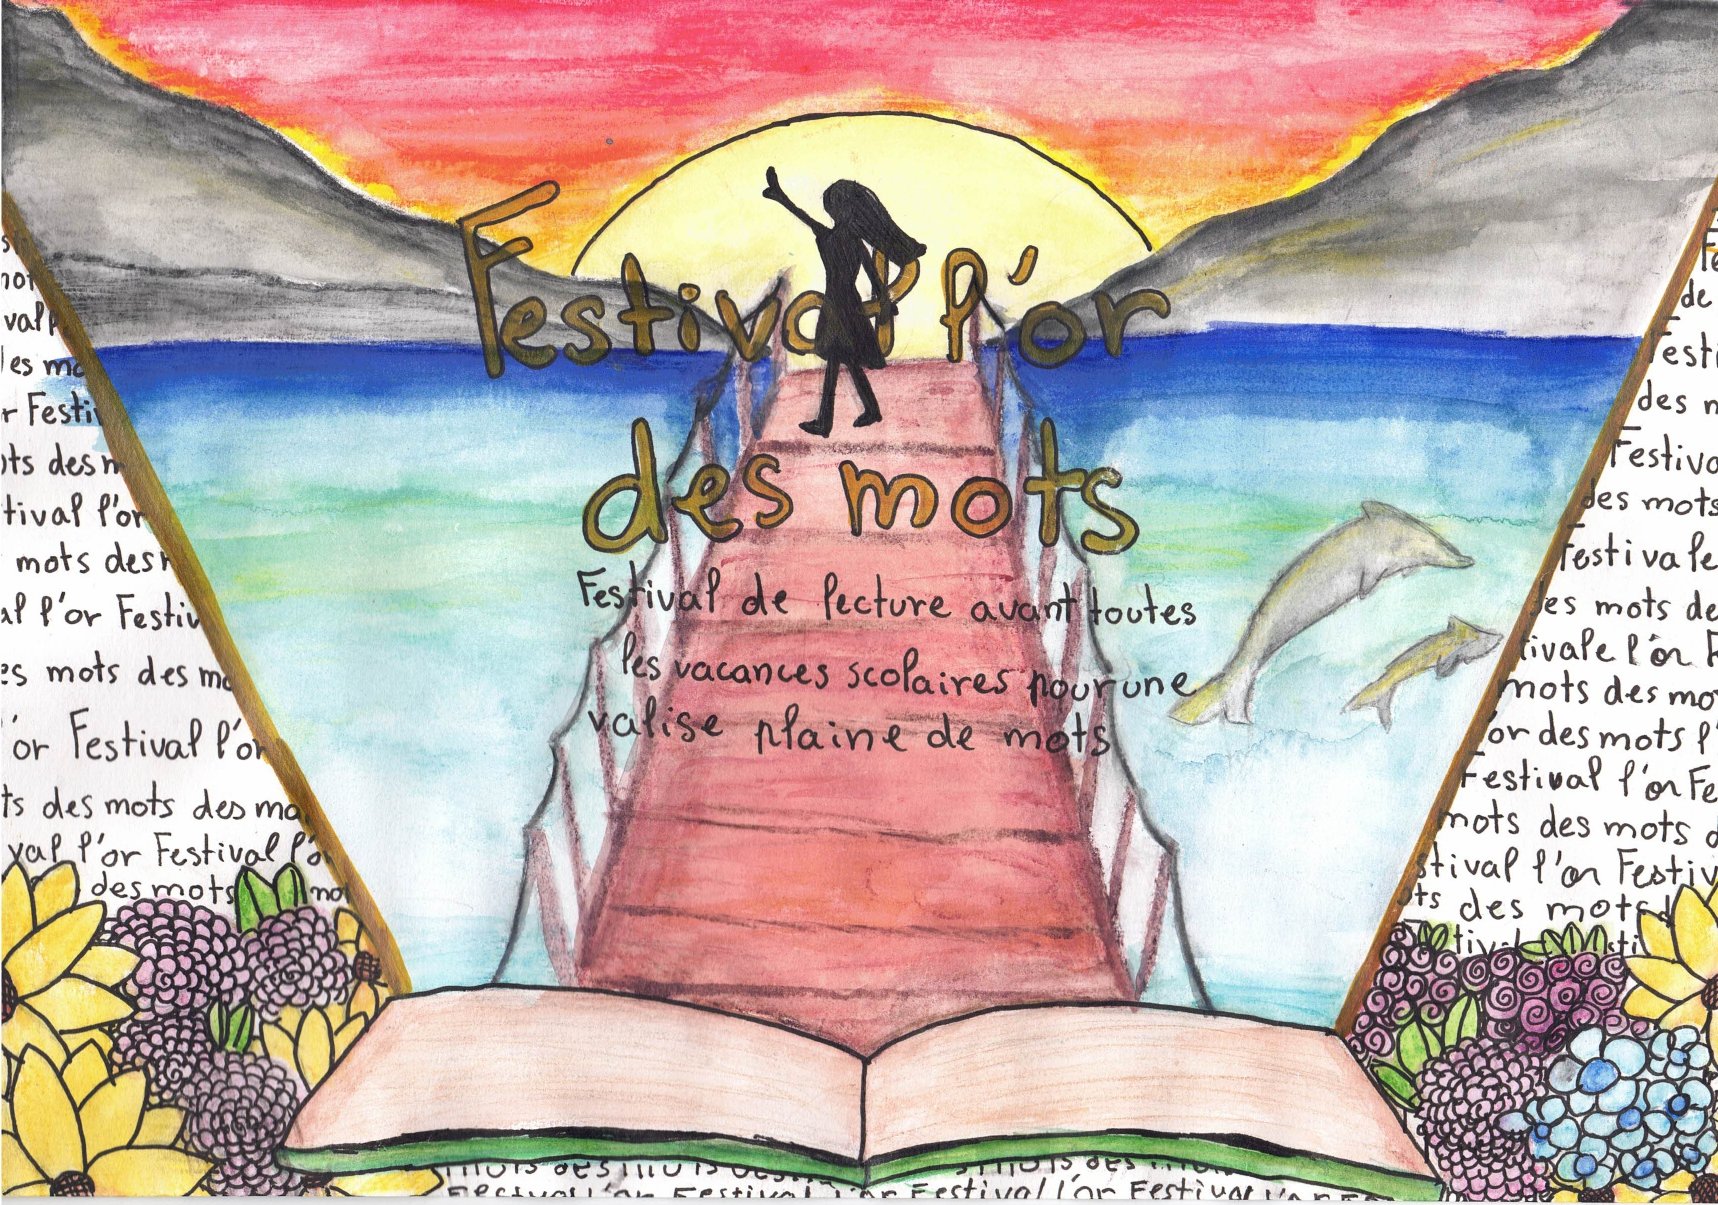 Festival l'or
des mots
Festival de lecture avant toutes
les vacances scolaires pour une
valise plaine de mots
val
les mo
r Festi
ts des m
tival l'or
mots des m
al l'or Festiv
es mots des mo
'or Festival l'or
ts des mots des mo
val l'or Festival l'o
des mots mo
Fe
de
Festi
des m
Festiva
des mots
Festivale
des mots de
tivale l'or F
mots des mo
'or des mots l'
Festival l'or Fe
mots des mots d
stival l'or Festiv
ots des mots
mots des mots des
l'or Festival l'or Festival l'or Festival l'or